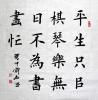 平生只
棋琴樂無
日不為圖
畫忙